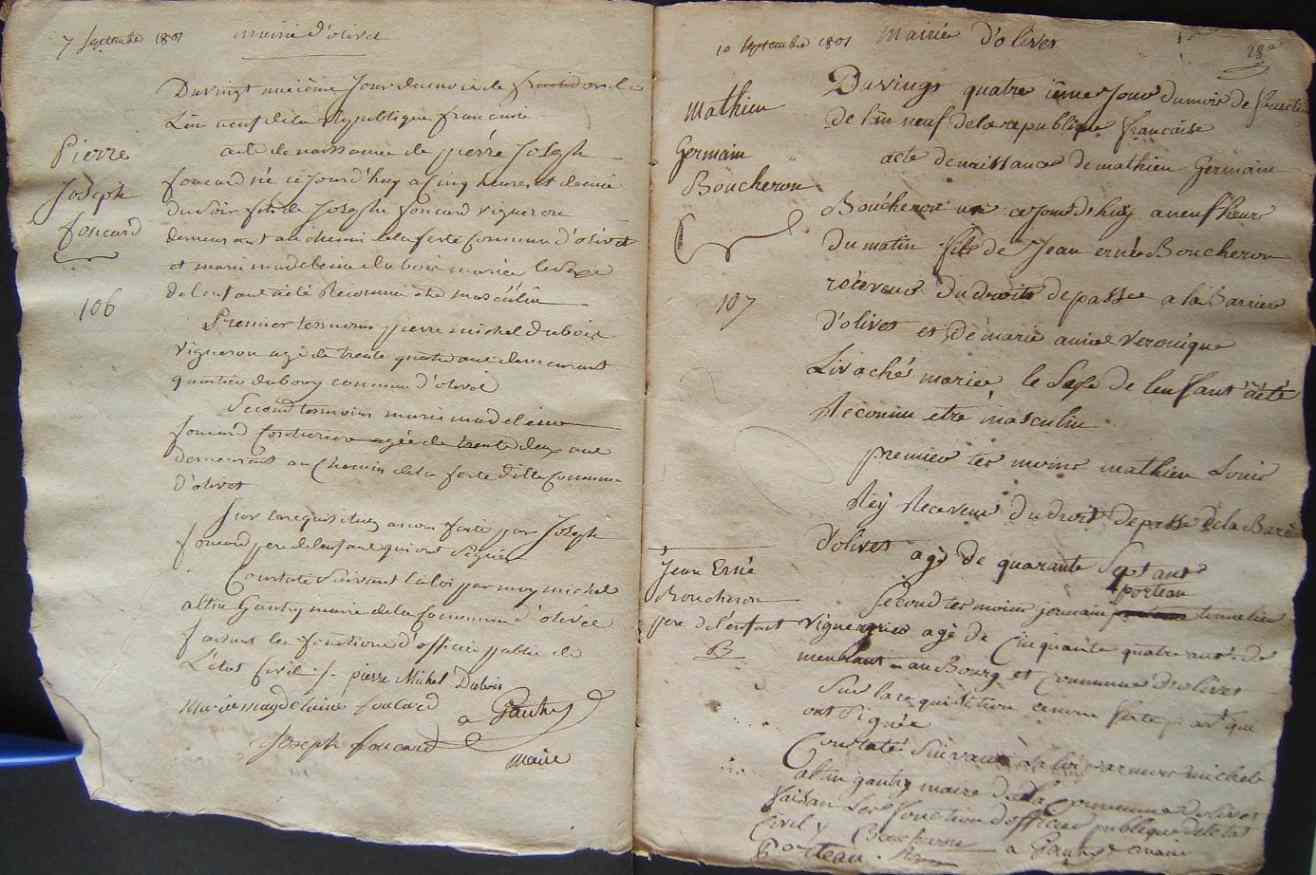 7 Septembre 1801 mairie d'olivet
Du vingt unième Jour du mois de fructidor de
L'an neuf de la Republique francaise
acte de naissance de pierre Joseph
Pierre
Joseph
foucard
106
foucard né ce Jourd'huy a cinq heures et demie
du soir fils de Joseph foucard vigneron
demeurant au chemin de la ferté Commune d'olivet
et marie madeleine dubois mariée le sexe
de l'enfant a été Reconnu etre masculin
Premier temoins pierre michel dubois
vigneron agé de trente quatre ans demeurant
quartier du bourg commune d'olivet
Second temoins marie madeleine
foucard Couturiere agée de trente deux ans
demeurant au Chemin de la ferté dite Commune
d'olivet
Sur la requisition a nous faite par Joseph
foucard pere de l'enfant qui ont Signée
Constaté Suivant la loi par moy michel
altin Gautry maire de la Commune d'olivet
faisant les fonctions d'officier public de
L'état Civil /. pierre Michel Dubois
Marie magdelaine foucard a Gautry
Joseph foucard maire
10 Septembre 1801 Mairie d'olivet
28e
Du vingt quatre ième Jour du mois de
De l'an neuf de la republique francaise
acte de naissance de mathieu Germain
mathieu
Germain
Boucheron
107
Boucheron né ce jour d'huy a neuf heure
du matin fils de Jean ernée Boucheron
receveur du droits de passe a la Barriere
d'olivet et de marie anne Veronique
Livaché mariée le Sexe de l'enfant a été
Reconnu etre masculin
premier temoins mathieu Louis
Rey Receveur du droit de passe de la Bariè
d'olivet agé de quarante Sept ans
porteau
Second temoins jermain tonnelier
Jean Ernée
Boucheron
pere de l'enfant
B
vigneron agé de Cinquante quatre ans de
meurant au Bourg et Commune d'olivet
Sur la requisition a nous faite par que
ont Signée
Constaté Suivant la loi par nous michel
altin gautry maire de la Commune d'olivet
faisan les fonction d'officier publique de l'etat
Civil Boucheron a Gautry maire
Porteau.